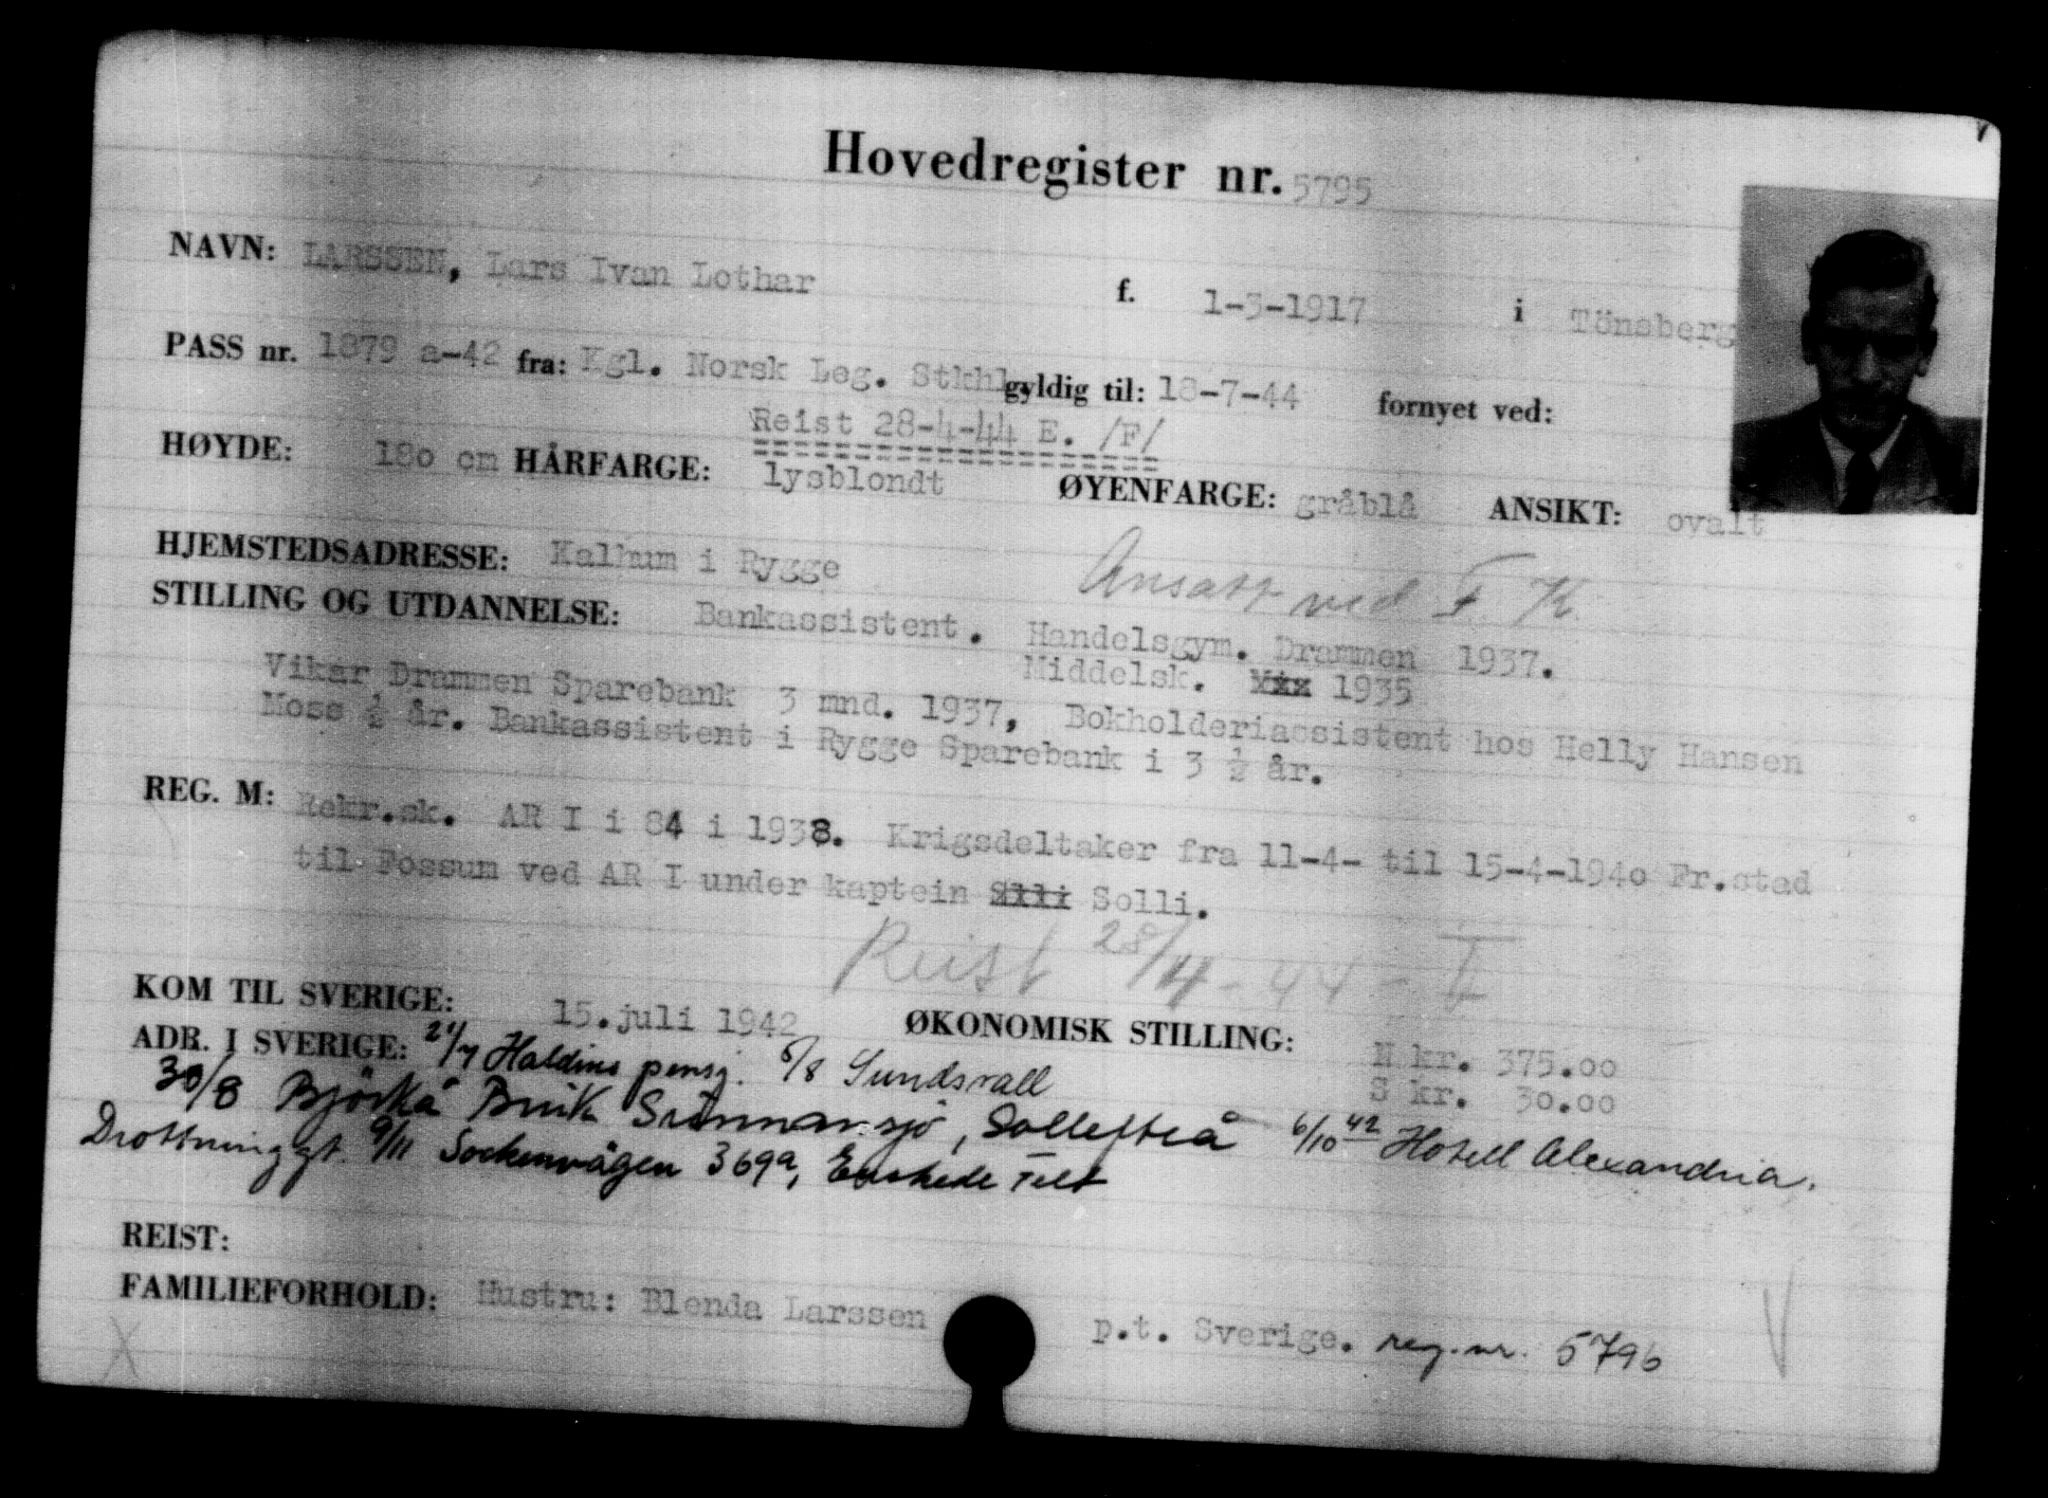 Hovedregister nr. 5795
NAVN: LARSSEN, Lars Ivan Lothar f. 1-3-1917 i Tönsberg
PASS nr. 1879 a-42 fra: Kgl. Norsk Leg. Stkhl. gyldig til: 18-7-44 fornyet ved:
Reist 28-4-44 E. /F/
HØYDE: 180 cm HÅRFARGE: lysblondt ØYENFARGE: gråblå ANSIKT: ovalt
HJEMSTEDSADRESSE: Kalhum i Rygge Ansatt ved F. K.
STILLING OG UTDANNELSE: Bankassistent. Handelsgym. Drammen 1937.
Middelsk. 1935
Vikar Drammen Sparebank 3 mnd. 1937, Bokholderiassistent hos Helly Hansen
Moss ½ år. Bankassistent i Rygge Sparebank i 3 ½ år.
REG. M: Rekr.sk. AR I i 84 i 1938. Krigsdeltaker fra 11-4- til 15-4-1940 Fr.stad
til Fossum ved AR I under kaptein Solli.
Reist 28/4-44 -
KOM TIL SVERIGE: 15.juli 1942 ØKONOMISK STILLING: N kr. 375.00
S kr. 30.00
ADR. I SVERIGE: 21/7 Haldins pensj. 5/8 Sundsvall
30/8 Björkå Bruk, Sollefteå 6/10 42 Hotell Alexandria.
Drottninggt. 9/11 Sockenvägen 369a, Enskede
REIST:
FAMILIEFORHOLD: Hustru: Blenda Larssen p.t. Sverige. reg.nr. 5796